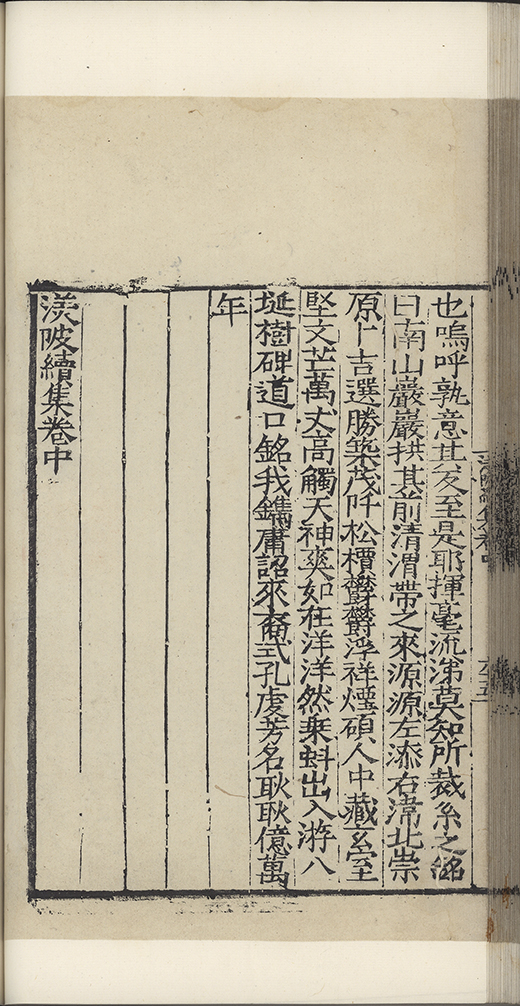 也嗚呼孰意其文至是耶揮毫流涕莫知所裁系之銘
曰南山巖巖拱其前清渭帶之來源源左添右澇北崇
原卜吉選勝築茂阡松檟鬱鬱浮祥煙碩人中藏玄室
堅文芒萬丈高觸天神爽如在洋洋然乘虯出入游八
埏樹碑道口銘我鐫庸詔來裔式孔虔芳名耿耿億萬
年
渼陂續集卷中